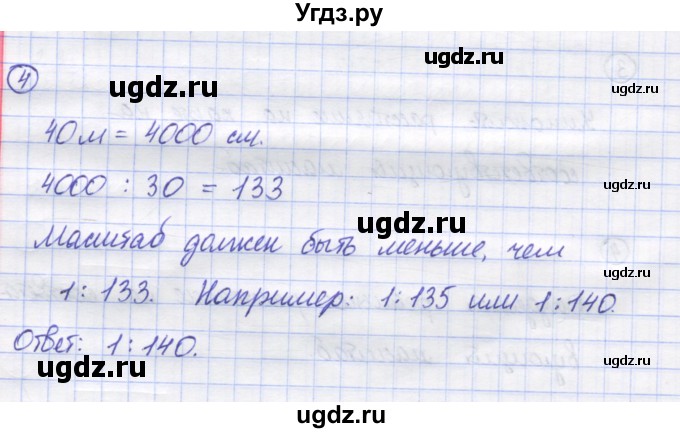 Угдз.ру
4
ugdz.ru
ugdz.ru
40м = 4000 см.
ugdz.ru
4000 : 30 = 133
ugdz.ru
Масштаб должен быть меньше, чем
ugdz.ru
1:133. Например: 1:135 или 1:140.
Ответ: 1:140.
ugdz.ru
ugdz.ru
ugdz.ru